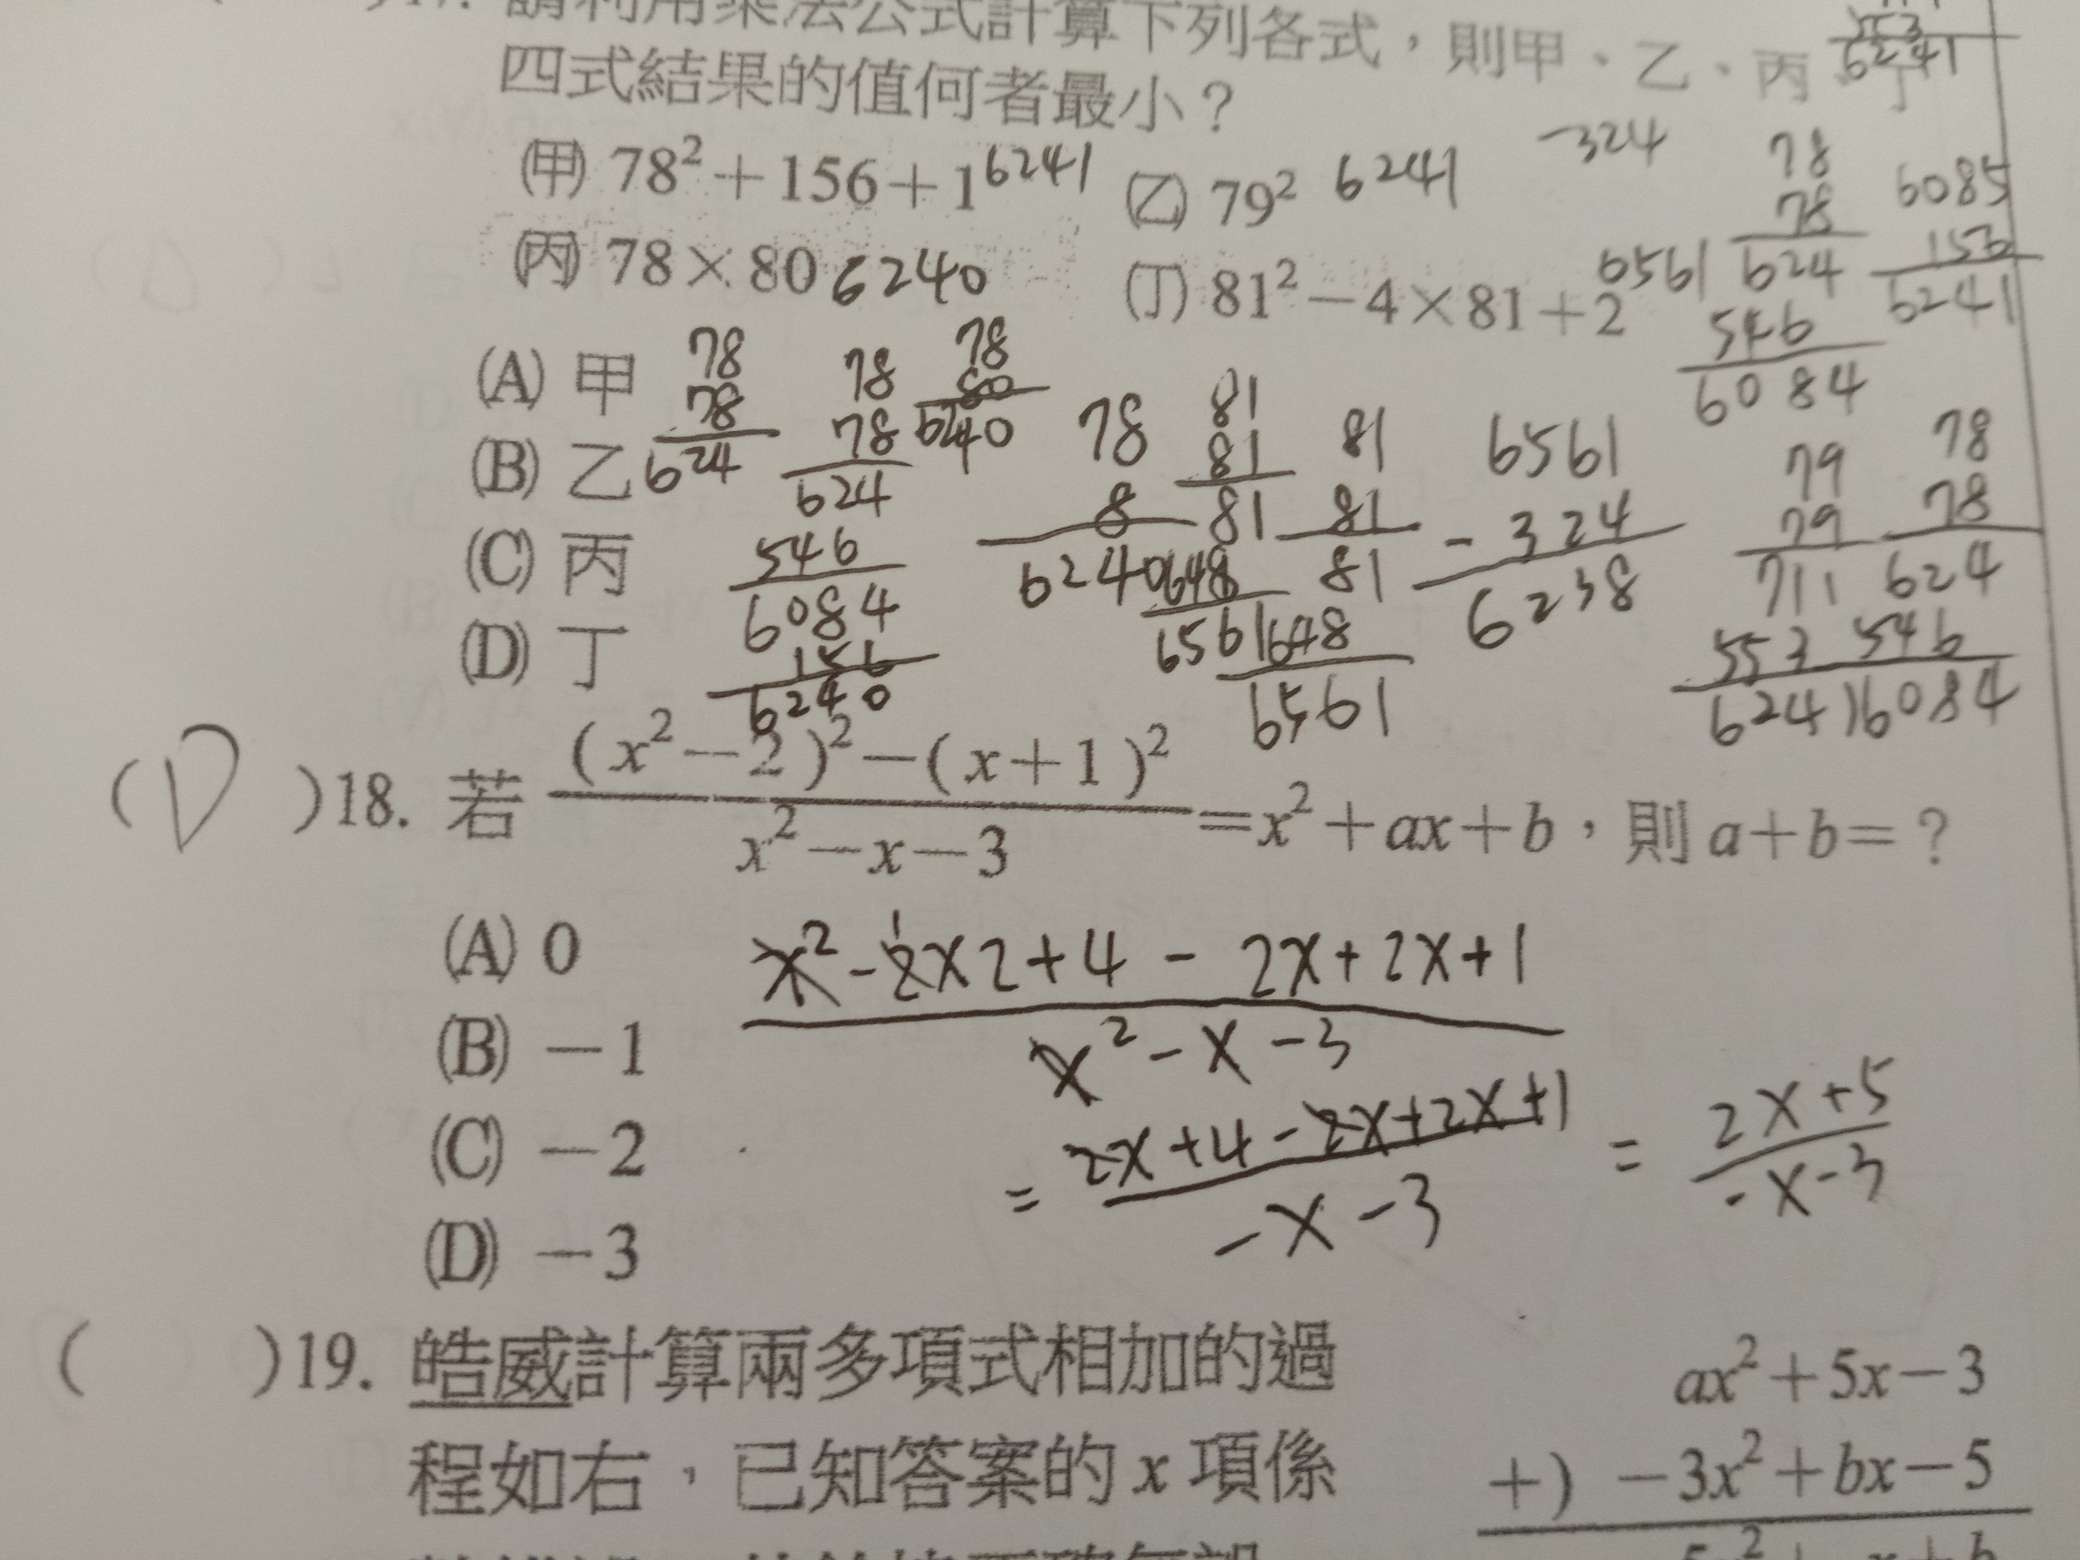 17. 請利用乘法公式計算下列各式，則甲、乙、丙、丁
6241
四式結果的值何者最小？
(甲) 78²+156+1 6241 (乙) 79² 6241 -324
(丙) 78×80 6240 (丁) 81²-4×81+2 6561
78
78
624
546
6084
6085
156
6241
(A) 甲
(B) 乙
(C) 丙
(D) 丁
78
78
624
78
78
624
546
6084
156
6240
78
80
6240
78
8
6240
81
81
81
648
6561
81
81
81
648
6561
6561
-324
6238
79
79
711
553
6241
78
78
624
546
6084
(D)18. 若 (x²-2)²-(x+1)² / x²-x-3 =x²+ax+b，則a+b=？
(A) 0
(B) -1
(C) -2
(D) -3
x²-2x2+4-2x+2x+1
x²-x-3
= 2x+4-2x+2x+1 / -x-3 = 2x+5 / -x-3
( )19. 皓威計算兩多項式相加的過
程如右，已知答案的x項係
ax²+5x-3
+) -3x²+bx-5